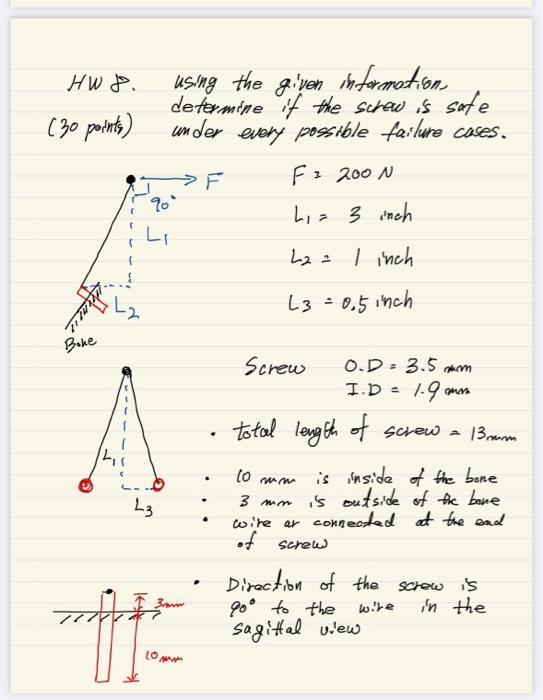 HW 8. using the given information,
determine if the screw is safe
(30 points) under every possible failure cases.
F
90°
L1
L2
Bone
F = 200 N
L1 = 3 inch
L2 = 1 inch
L3 = 0.5 inch
Screw O.D = 3.5 mm
I.D = 1.9 mm
L1
L3
• total length of screw = 13mm
• 10 mm is inside of the bone
• 3 mm is outside of the bone
• wire ar connected at the end
of screw
• Direction of the screw is
90° to the wire in the
sagittal view
3mm
10mm